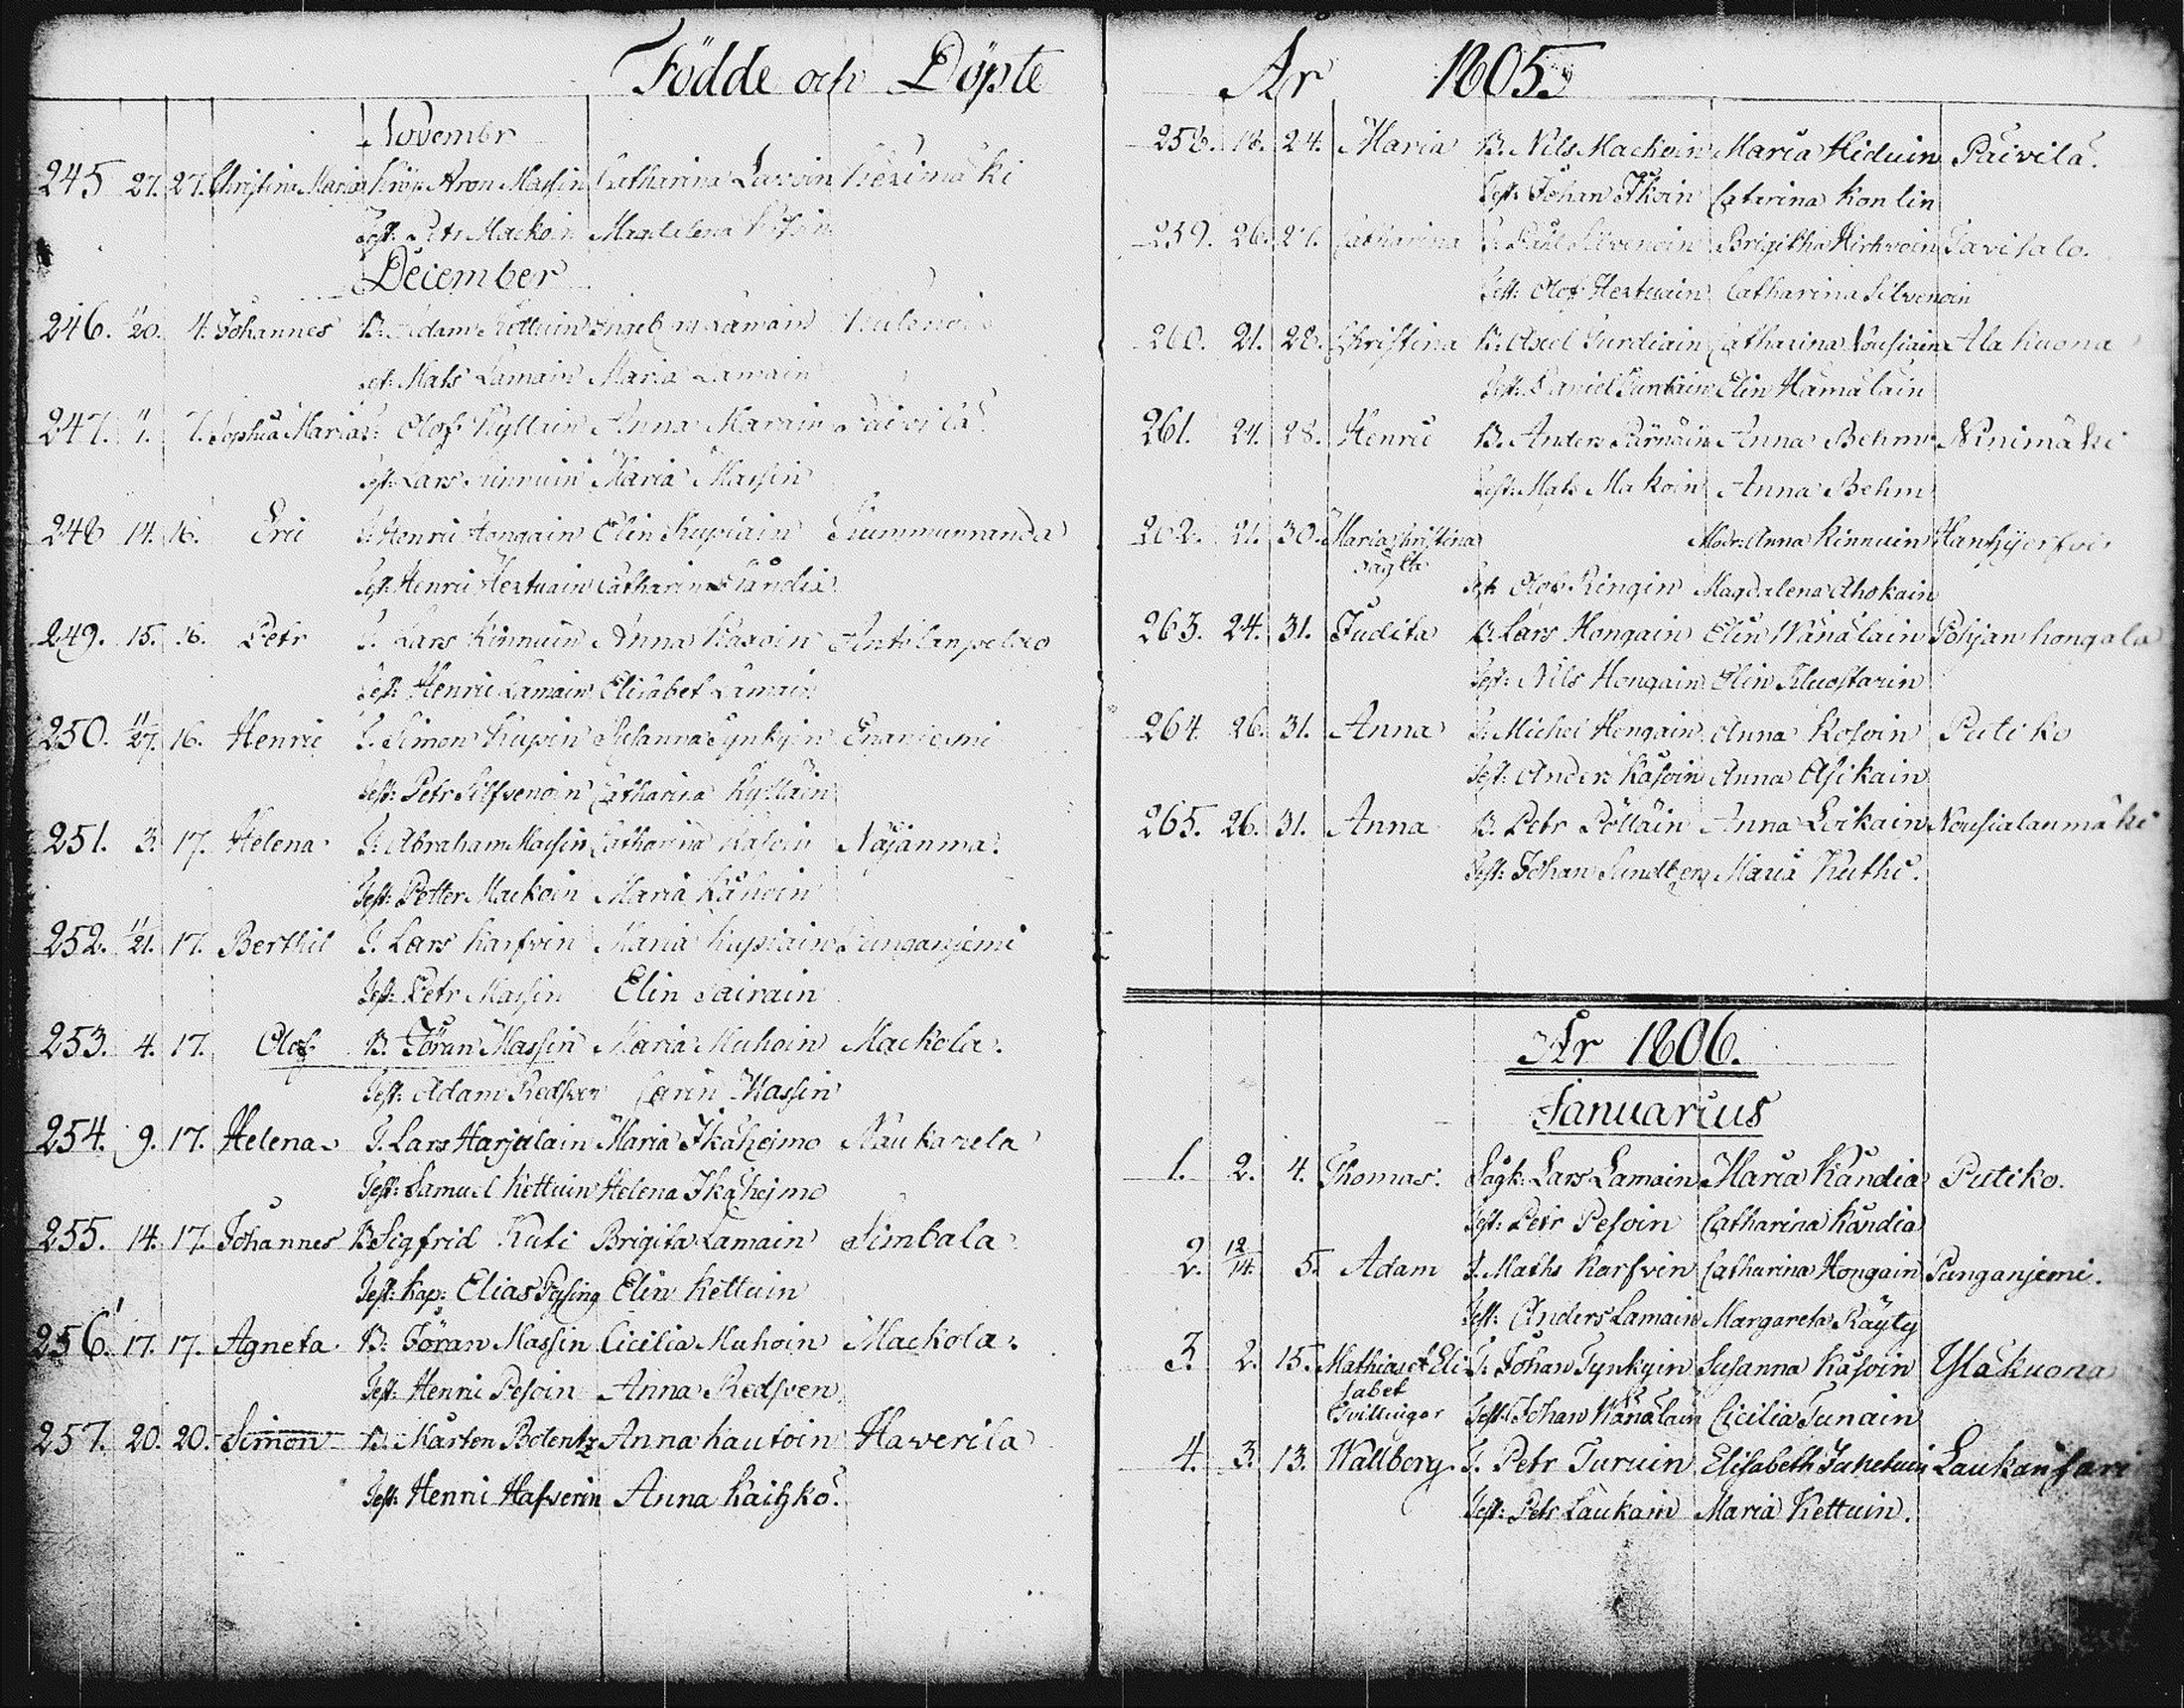 Födde och Döpte
November
245 27. 27. Christina Maria Aron Massin Catharina Kerimäki
Test: Petr Mackoin Magdalena
December
246. 11/20. 4. Johannes B. Adam Kettuin Lamain
Test: Mats Lamain Maria Lamain
247. 7. 7. Sophia Maria Olof Kyllain Anna Päivilä
Test: Lars Kinnuin Maria Massin
248 14. 16. Eric Henric Hongain Elin Kupiain Kummunranda
Test: Henric Hertuain Catharina Kåndia
249. 15. 16. Petr T. Lars Kinnuin Anna Kasoin
Test: Henric Lamain Elisabet Lamain
250. 11/27. 16. Henric T. Simon Susanna Tynkyin Enaniemi
Test: Petr Silfvenoin Catharina Kyllain
251. 3. 17. Helena T. Abraham Massin Catharina Kasoin
Test: Petter Mackoin Maria
252. 11/21. 17. Berthil T. Lars Karfvin Maria Kupiain Punganjemi
Test: Petr Massin Elin
253. 4. 17. Olof B. Jöran Massin Maria Muhoin Mackola.
Test: Adam Redsven Carin Massin
254. 9. 17. Helena T. Lars Harjulain Maria Ikähejmo Naukarela
Test: Samuel Kettuin Helena Ikähejmo
255. 14. 17. Johannes B Sigfrid Kuti Brigita Lamain Simbala
Test: Kap: Elias Elin Kettuin
256. 17. 17. Agneta B. Jöran Massin Cicilia Muhoin Mackola.
Test: Henric Pesoin Anna Redsven
257. 20. 20. Simon B. Mårten Bolentz Anna Kautoin Haverila
Test: Henric Hafverin Anna Kaitzko.
År 1805.
258. 18. 24. Maria B. Nils Mackoin Maria Hiduin Päivilä.
Test: Johan Ikoin Catarina Konlin
259. 26. 27. Catharina Paul Silvenoin Brigitha Hirkvoin Savisalo.
Test: Olof Hertuain Catharina Silvenoin
260. 21. 28. Christina B. Axel Turdiain Catharina Nousiain Ala Kuona
Test: Daniel Elin Hämäläin
261. 24. 28. Henric B. Anders Pärnäin Anna Behm Ninimäki
Test: Mats Makoin Anna Behm
262. 21. 30. Maria Christina Modr: Anna Kinnuin
oägta
Test: Olof Ringin Magdalena Ahokain
263. 24. 31. Judita B. Lars Hongain Elin Wänäläin Pohjanhongala
Test: Nils Hongain Elin Kluostarin
264. 26. 31. Anna T. Michel Hongain Anna Kosoin Putiko
Test: Anders Kasoin Anna Asikain
265. 26. 31. Anna B. Petr Pölläin Anna Loikain Nousialanmäki
Test: Johan Sundberg Maria Kuthi.
År 1806.
Januarius
1. 2. 4. Thomas. Lars Lamain Maria Kåndia Putiko.
Test: Petr Pesoin Catharina Kåndia
2. 12/14. 5. Adam T. Maths Karfvin Catharina Hongain Punganjemi.
Test: Anders Lamain Margareta Räyty
3. 2. 15. Mathias et Eli T. Johan Tynkyin Susanna Kasoin Ylakuona
sabet
Tvillingar Test: Johan Wänäläin Cicilia Tunain
4. 3. 13. Wallborg. T. Petr Turuin Elisabeth Laukansari
Test: Petr Laukain Maria Kettuin.